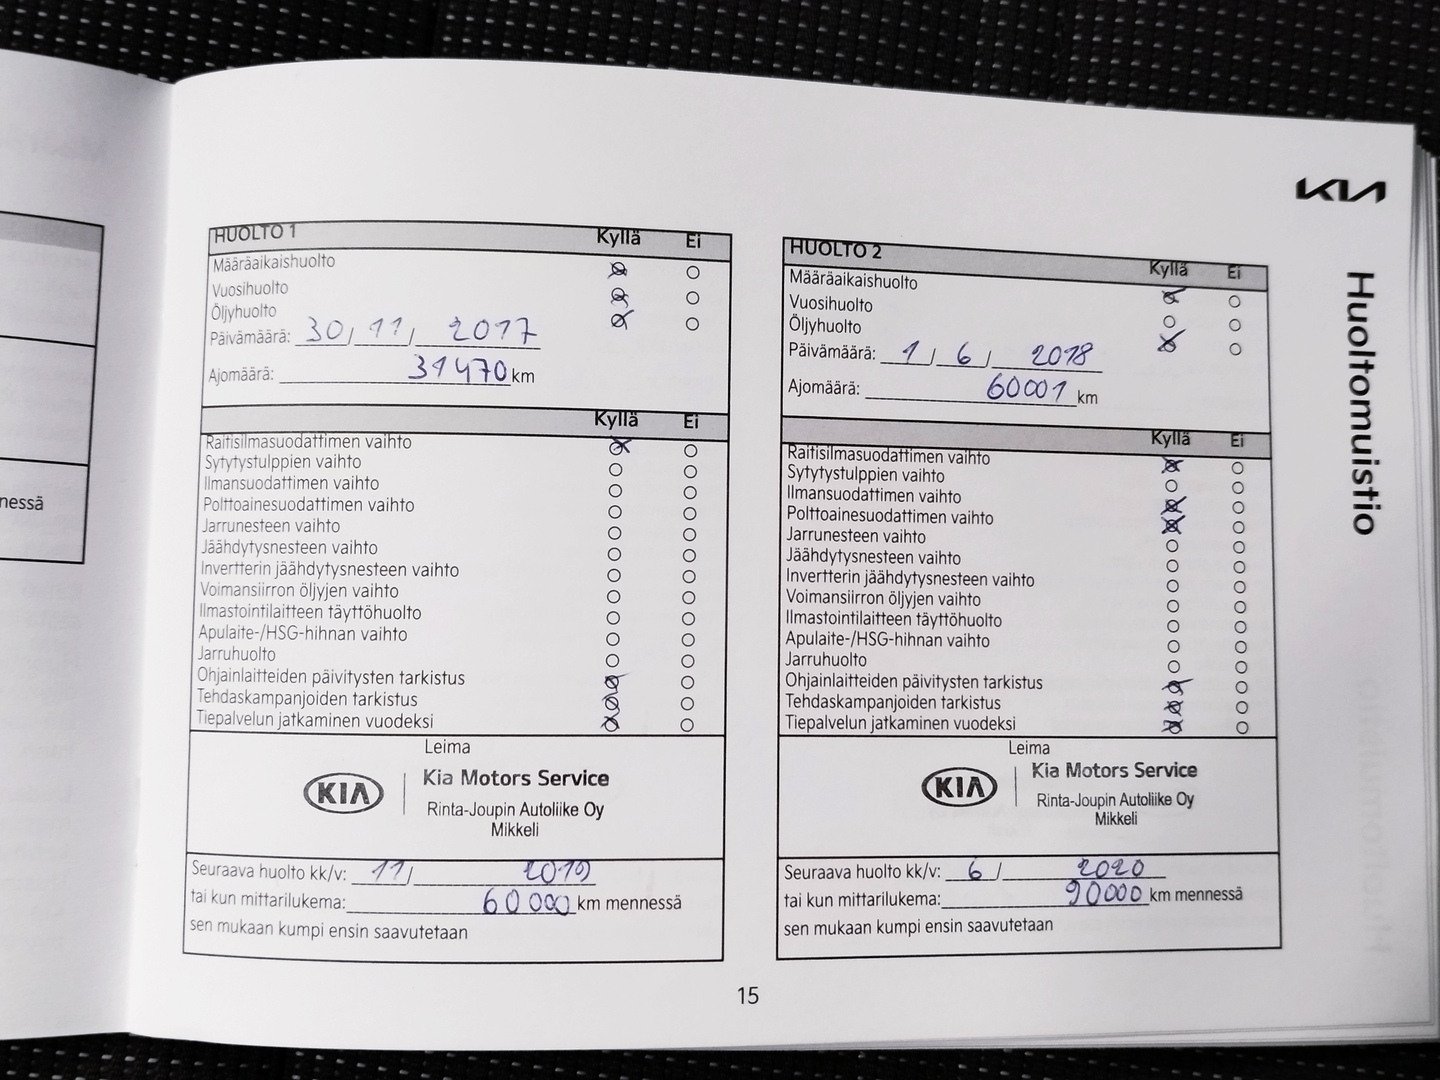 nessä
KIA
Huoltomuistio
HUOLTO 1 Kyllä Ei
Määräaikaishuolto
Vuosihuolto
Öljyhuolto
Päivämäärä: 30/11/ 2017
Ajomäärä: 31470 km
Kyllä Ei
Raitisilmasuodattimen vaihto
Sytytystulppien vaihto
Ilmansuodattimen vaihto
Polttoainesuodattimen vaihto
Jarrunesteen vaihto
Jäähdytysnesteen vaihto
Invertterin jäähdytysnesteen vaihto
Voimansiirron öljyjen vaihto
Ilmastointilaitteen täyttöhuolto
Apulaite-/HSG-hihnan vaihto
Jarruhuolto
Ohjainlaitteiden päivitysten tarkistus
Tehdaskampanjoiden tarkistus
Tiepalvelun jatkaminen vuodeksi
Leima
KIA Kia Motors Service
Rinta-Joupin Autoliike Oy
Mikkeli
Seuraava huolto kk/v: 11/ 2019
tai kun mittarilukema: 60000 km mennessä
sen mukaan kumpi ensin saavutetaan
HUOLTO 2 Kyllä Ei
Määräaikaishuolto
Vuosihuolto
Öljyhuolto
Päivämäärä: 1/ 6/ 2018
Ajomäärä: 60001 km
Kyllä Ei
Raitisilmasuodattimen vaihto
Sytytystulppien vaihto
Ilmansuodattimen vaihto
Polttoainesuodattimen vaihto
Jarrunesteen vaihto
Jäähdytysnesteen vaihto
Invertterin jäähdytysnesteen vaihto
Voimansiirron öljyjen vaihto
Ilmastointilaitteen täyttöhuolto
Apulaite-/HSG-hihnan vaihto
Jarruhuolto
Ohjainlaitteiden päivitysten tarkistus
Tehdaskampanjoiden tarkistus
Tiepalvelun jatkaminen vuodeksi
Leima
KIA Kia Motors Service
Rinta-Joupin Autoliike Oy
Mikkeli
Seuraava huolto kk/v: 6/ 2020
tai kun mittarilukema: 90000 km mennessä
sen mukaan kumpi ensin saavutetaan
15